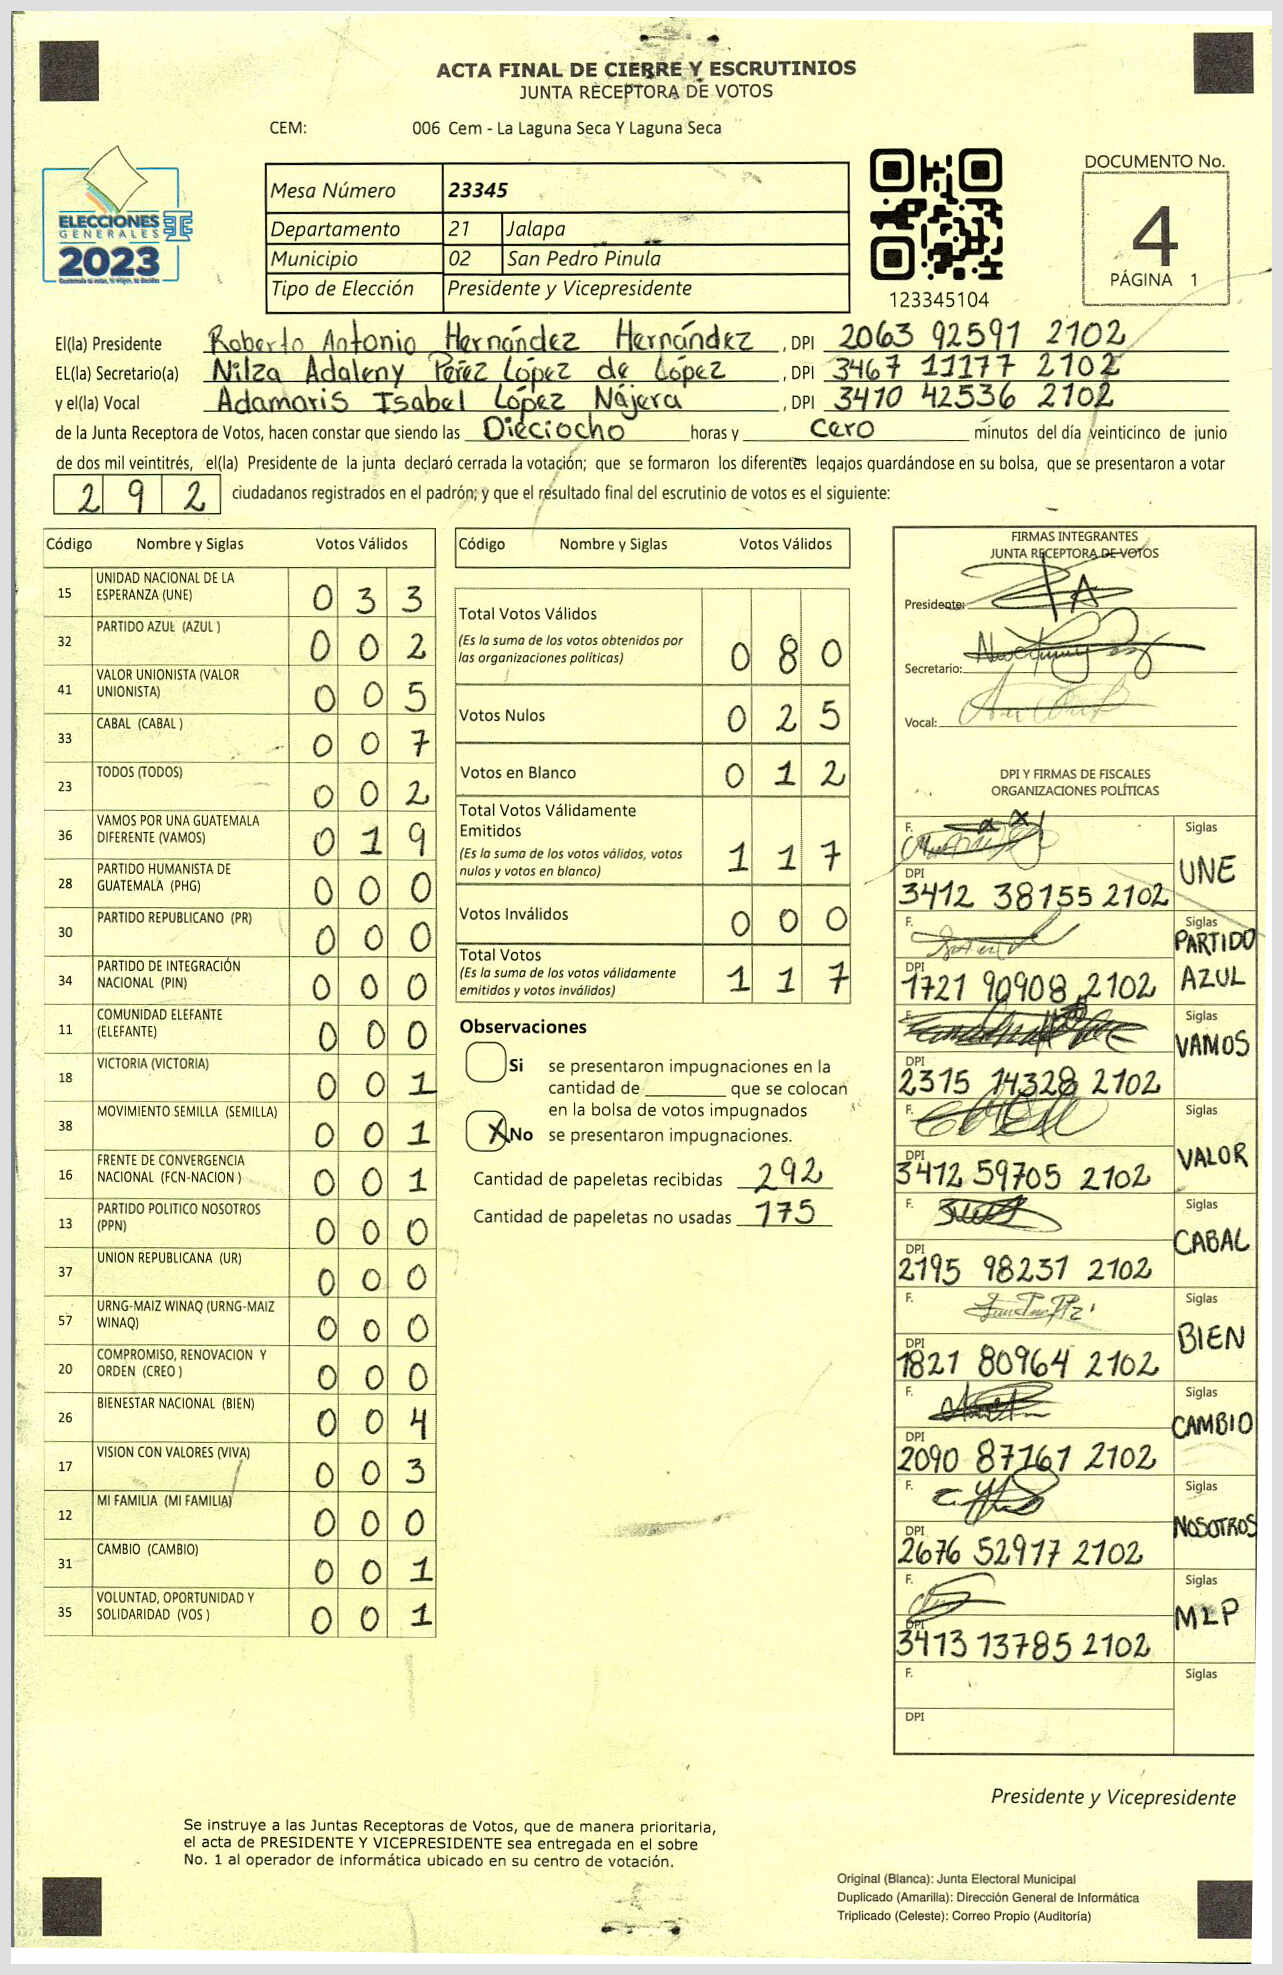 ACTA FINAL DE CIERRE Y ESCRUTINIOS
JUNTA RECEPTORA DE VOTOS
CEM: 006 Cem - La Laguna Seca Y Laguna Seca
ELECCIONES
GENERALES
2023
Mesa Número 23345
Departamento 21 Jalapa
Municipio 02 San Pedro Pinula
Tipo de Elección Presidente y Vicepresidente
123345104
DOCUMENTO No.
4
PÁGINA 1
El(la) Presidente Roberto Antonio Hernández Hernández , DPI 2063 92591 2102
EL(la) Secretario(a) Nilza Adaleny Pérez López de López , DPI 3467 11177 2102
y el(la) Vocal Adamaris Isabel López Nájera , DPI 3410 42536 2102
de la Junta Receptora de Votos, hacen constar que siendo las Dieciocho horas y cero minutos del día veinticinco de junio
de dos mil veintitrés, el(la) Presidente de la junta declaró cerrada la votación; que se formaron los diferentes legajos guardándose en su bolsa, que se presentaron a votar
292 ciudadanos registrados en el padrón; y que el resultado final del escrutinio de votos es el siguiente:
Código Nombre y Siglas Votos Válidos
15 UNIDAD NACIONAL DE LA ESPERANZA (UNE) 0 3 3
32 PARTIDO AZUL (AZUL ) 0 0 2
41 VALOR UNIONISTA (VALOR UNIONISTA) 0 0 5
33 CABAL (CABAL ) 0 0 7
23 TODOS (TODOS) 0 0 2
36 VAMOS POR UNA GUATEMALA DIFERENTE (VAMOS) 0 1 9
28 PARTIDO HUMANISTA DE GUATEMALA (PHG) 0 0 0
30 PARTIDO REPUBLICANO (PR) 0 0 0
34 PARTIDO DE INTEGRACIÓN NACIONAL (PIN) 0 0 0
11 COMUNIDAD ELEFANTE (ELEFANTE) 0 0 0
18 VICTORIA (VICTORIA) 0 0 1
38 MOVIMIENTO SEMILLA (SEMILLA) 0 0 1
16 FRENTE DE CONVERGENCIA NACIONAL (FCN-NACION ) 0 0 1
13 PARTIDO POLITICO NOSOTROS (PPN) 0 0 0
37 UNION REPUBLICANA (UR) 0 0 0
57 URNG-MAIZ WINAQ (URNG-MAIZ WINAQ) 0 0 0
20 COMPROMISO, RENOVACION Y ORDEN (CREO ) 0 0 0
26 BIENESTAR NACIONAL (BIEN) 0 0 4
17 VISION CON VALORES (VIVA) 0 0 3
12 MI FAMILIA (MI FAMILIA) 0 0 0
31 CAMBIO (CAMBIO) 0 0 1
35 VOLUNTAD, OPORTUNIDAD Y SOLIDARIDAD (VOS ) 0 0 1
Código Nombre y Siglas Votos Válidos
Total Votos Válidos 0 8 0
(Es la suma de los votos obtenidos por
las organizaciones políticas)
Votos Nulos 0 2 5
Votos en Blanco 0 1 2
Total Votos Válidamente
Emitidos 1 1 7
(Es la suma de los votos válidos, votos
nulos y votos en blanco)
Votos Inválidos 0 0 0
Total Votos 1 1 7
(Es la suma de los votos válidamente
emitidos y votos inválidos)
Observaciones
Si se presentaron impugnaciones en la
cantidad de que se colocan
en la bolsa de votos impugnados
X No se presentaron impugnaciones.
Cantidad de papeletas recibidas 292
Cantidad de papeletas no usadas 175
FIRMAS INTEGRANTES
JUNTA RECEPTORA DE VOTOS
Presidente:
Secretario:
Vocal:
DPI Y FIRMAS DE FISCALES
ORGANIZACIONES POLÍTICAS
F. Siglas
DPI 3412 38155 2102 UNE
F. Siglas
DPI 1721 90908 2102 PARTIDO AZUL
F. Siglas
DPI 2315 14328 2102 VAMOS
F. Siglas
DPI 3412 59705 2102 VALOR
F. Siglas
DPI 2195 98231 2102 CABAL
F. Siglas
DPI 1821 80964 2102 BIEN
F. Siglas
DPI 2090 87161 2102 CAMBIO
F. Siglas
DPI 2676 52917 2102 NOSOTROS
F. Siglas
DPI 3413 13785 2102 MLP
F. Siglas
DPI
Presidente y Vicepresidente
Se instruye a las Juntas Receptoras de Votos, que de manera prioritaria,
el acta de PRESIDENTE Y VICEPRESIDENTE sea entregada en el sobre
No. 1 al operador de informática ubicado en su centro de votación.
Original (Blanca): Junta Electoral Municipal
Duplicado (Amarilla): Dirección General de Informática
Triplicado (Celeste): Correo Propio (Auditoría)